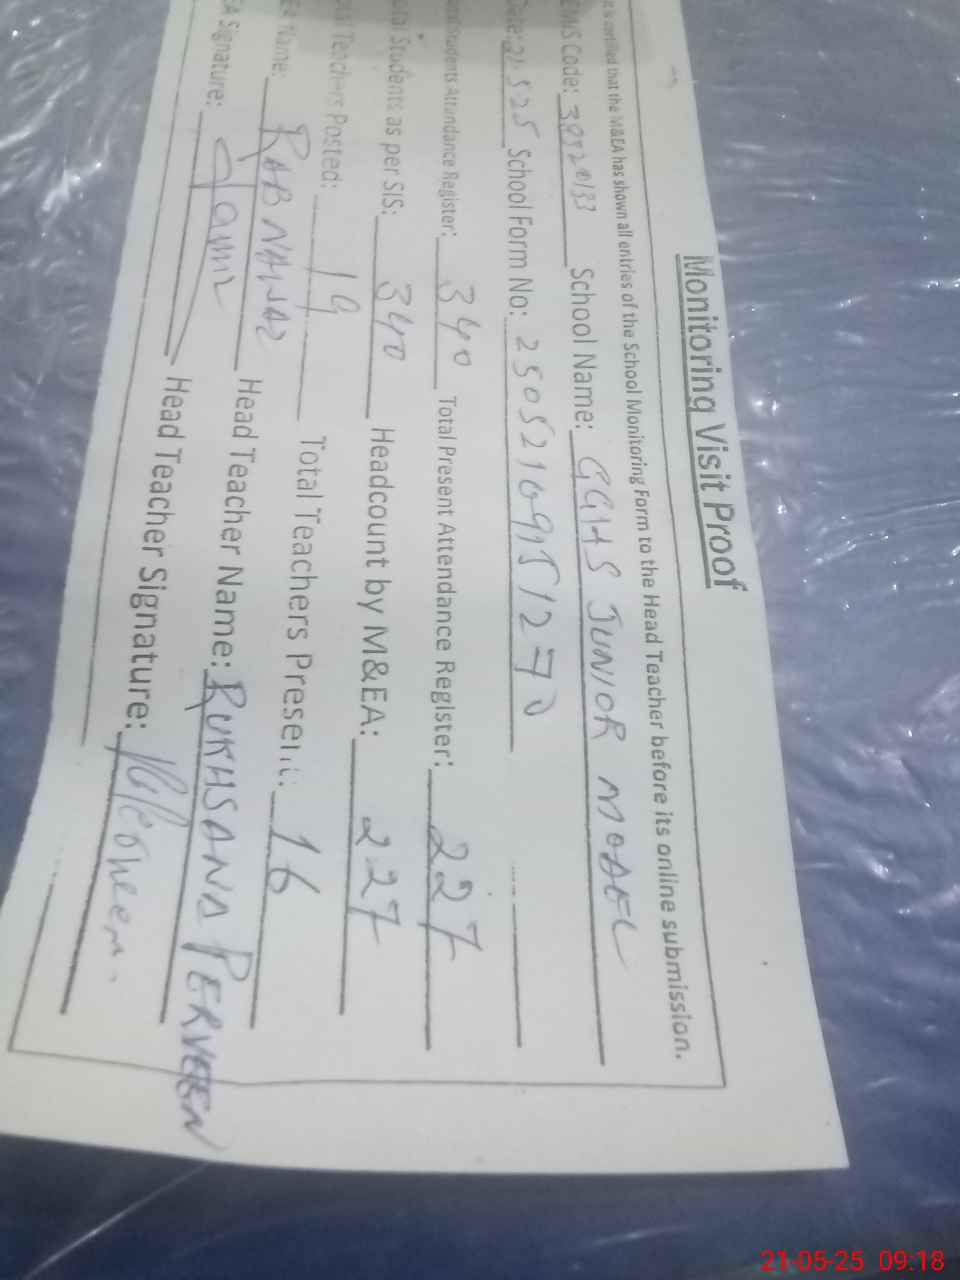 Monitoring Visit Proof
It is certified that the M&EA has shown all entries of the School Monitoring Form to the Head Teacher before its online submission.
EMIS Code: School Name: GGHS JUNIOR MODEL
Date: 21 5 25 School Form No:
Students Attendance Register: 340 Total Present Attendance Register: 227
Students as per SIS: 340 Headcount by M&EA: 227
Teachers Posted: 19 Total Teachers Present: 16
Name: RAB NAWAZ Head Teacher Name: RUKHSANA PERVEEN
Signature: Head Teacher Signature:
21-05-25 09:18